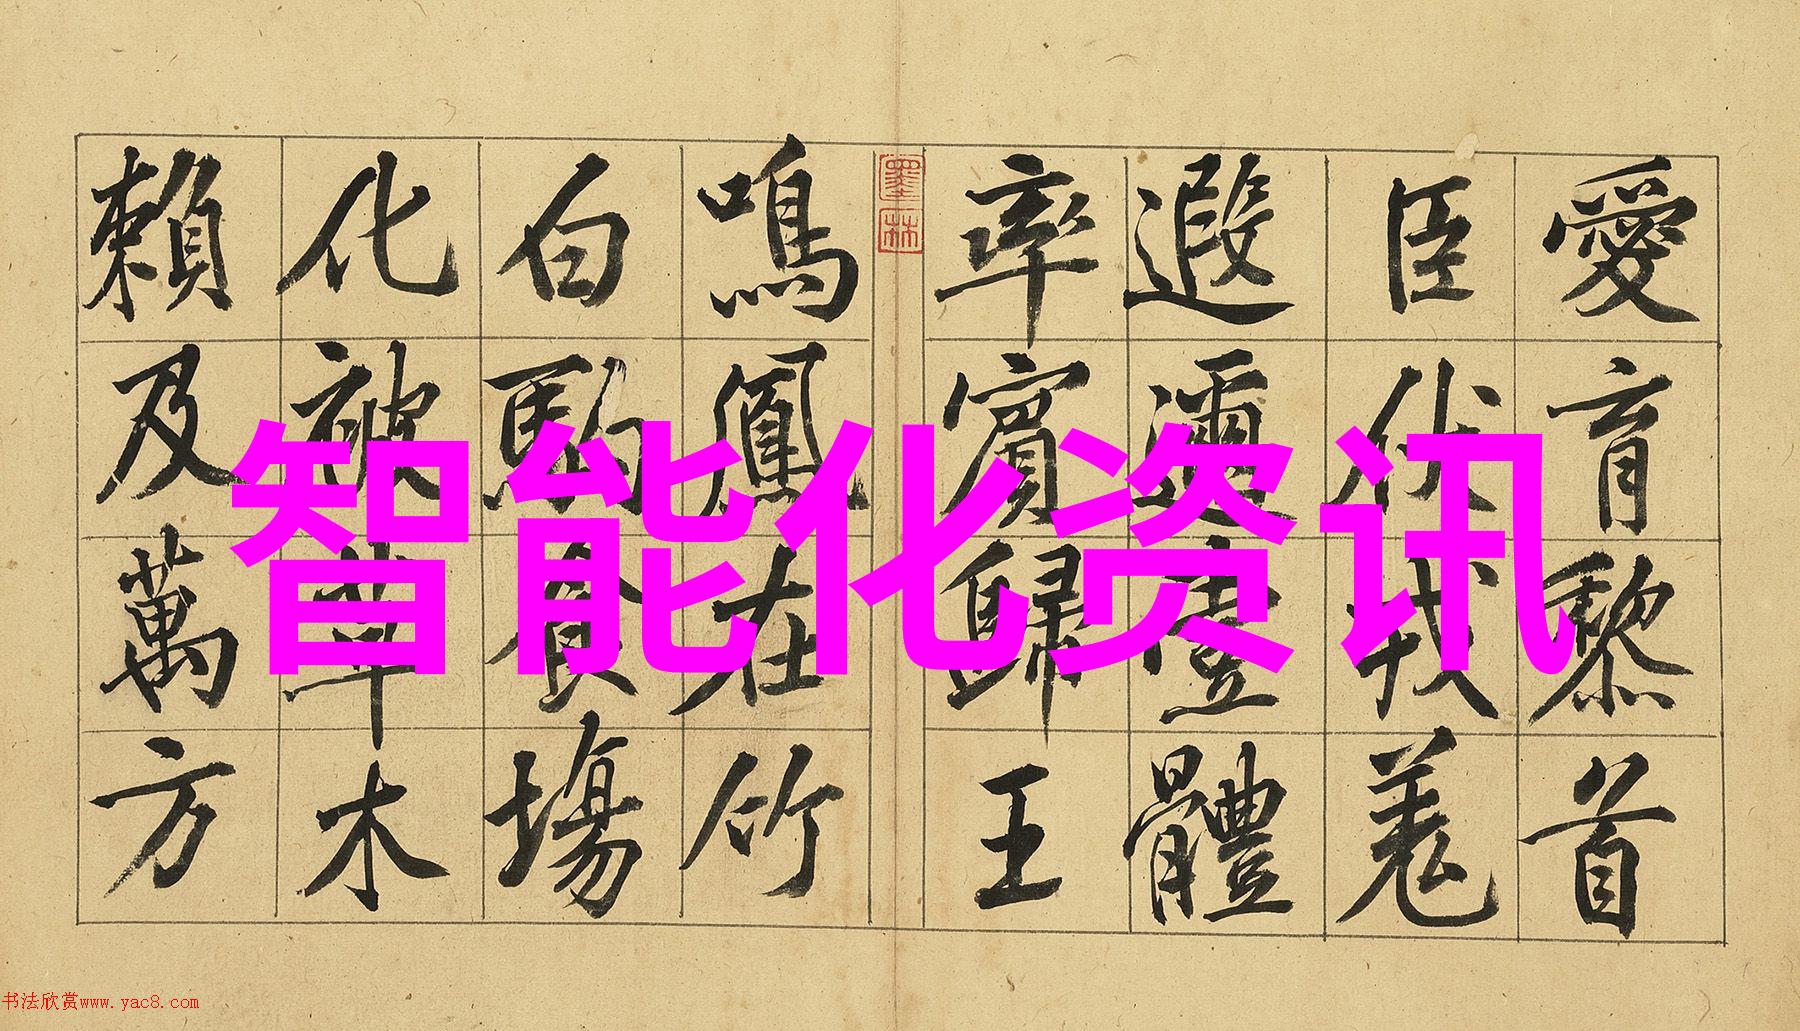 愛育黎首
臣伏戎羌
遐邇壹體
率賓歸王
鳴鳳在竹
白駒食場
化被草木
賴及萬方
墨林
智能化资讯
书法欣赏www.yac8.com